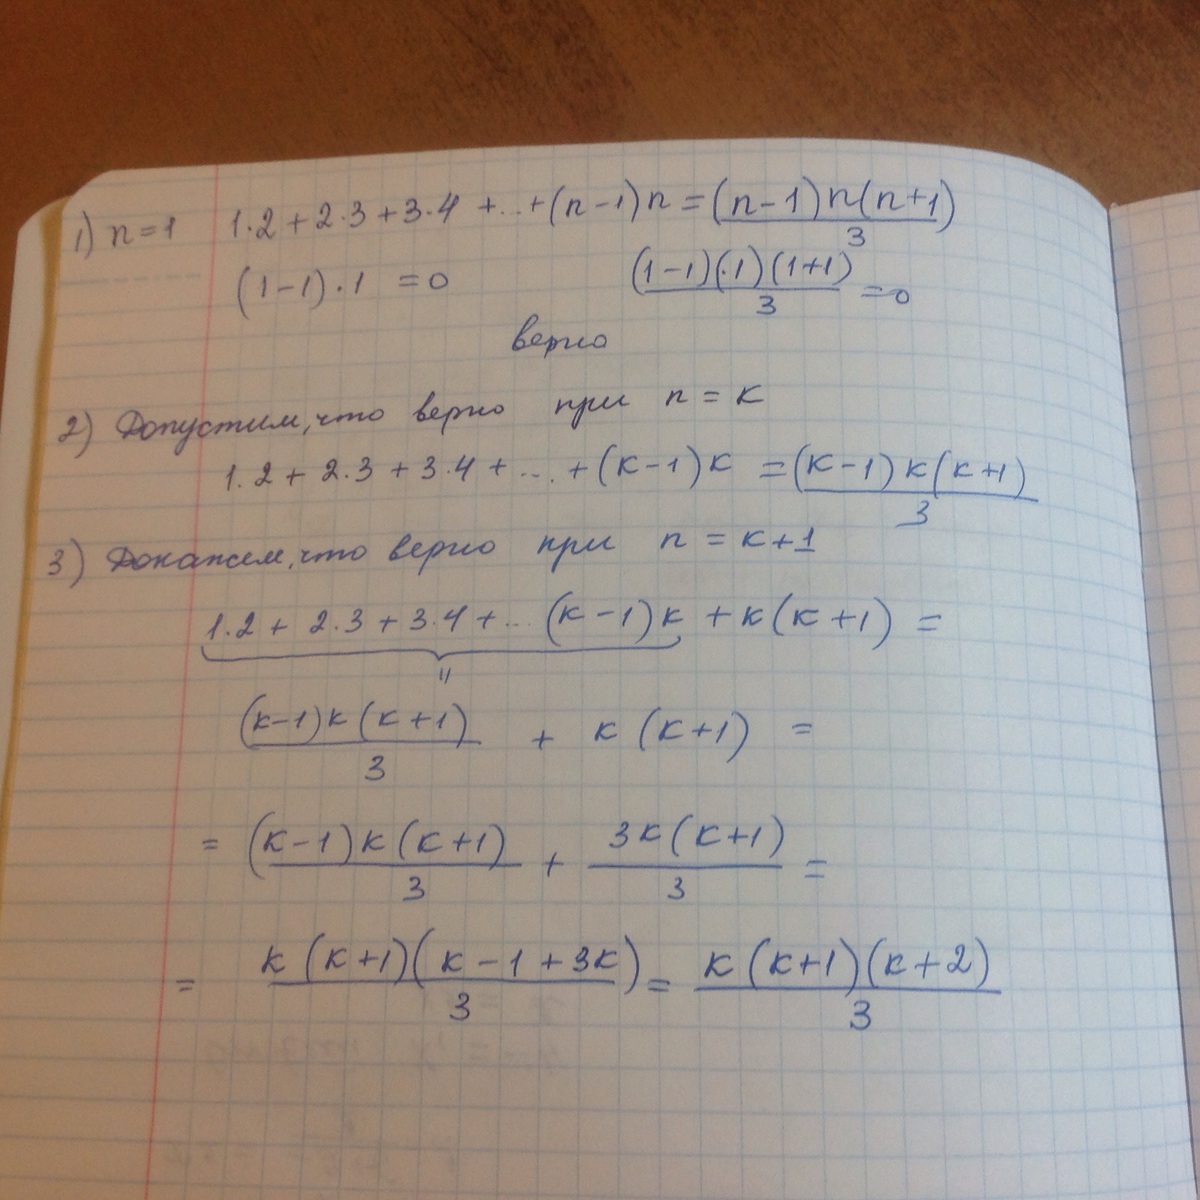 1) n=1 1·2+2·3+3·4 +...+(n-1)n = (n-1)n(n+1)/3
(1-1)·1 =0 (1-1)(·1)(1+1)/3 =0
верно
2) Допустим, что верно при n = к
1·2 + 2·3 + 3·4 + ... + (к-1)к = (к-1)к(к+1)/3
3) Докажем, что верно при n = к+1
1·2 + 2·3 + 3·4 + ... (к-1)к + к(к+1) =
"
(к-1)к(к+1)/3 + к(к+1) =
= (к-1)к(к+1)/3 + 3к(к+1)/3 =
= к(к+1)(к-1+3к)/3 = к(к+1)(к+2)/3